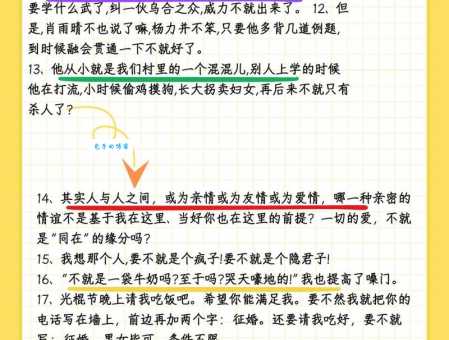 要学什么武了,纠一伙乌合之众,威力不就出来了。 12、但
是,肖雨晴不也说了嘛,杨力并不笨,只要他多背几道例题,
到时候融会贯通一下不就好了。
13、他从小就是我们村里的一个混混儿,别人上学的时候
他在打流,小时候偷鸡摸狗,长大拐卖妇女,再后来不就只有
杀人了?
14、其实人与人之间，或为亲情或为友情或为爱情，哪一种亲密的
情谊不是基于我在这里、当好你也在这里的前提？一切的爱，不就
是“同在”的缘分吗?
15、我想那个人,要不就是个疯子!要不就是个隐君子!
16、“不就是一袋牛奶吗?至于吗?哭天嚎地的!”我也提高了嗓门。
17、光棍节晚上请我吃饭吧。希望你能满足我。要不然我就把你的
电话写在墙上，前边再加两个字：征婚。还要请我吃好，要不就
写：征婚，男女皆可，条件不限